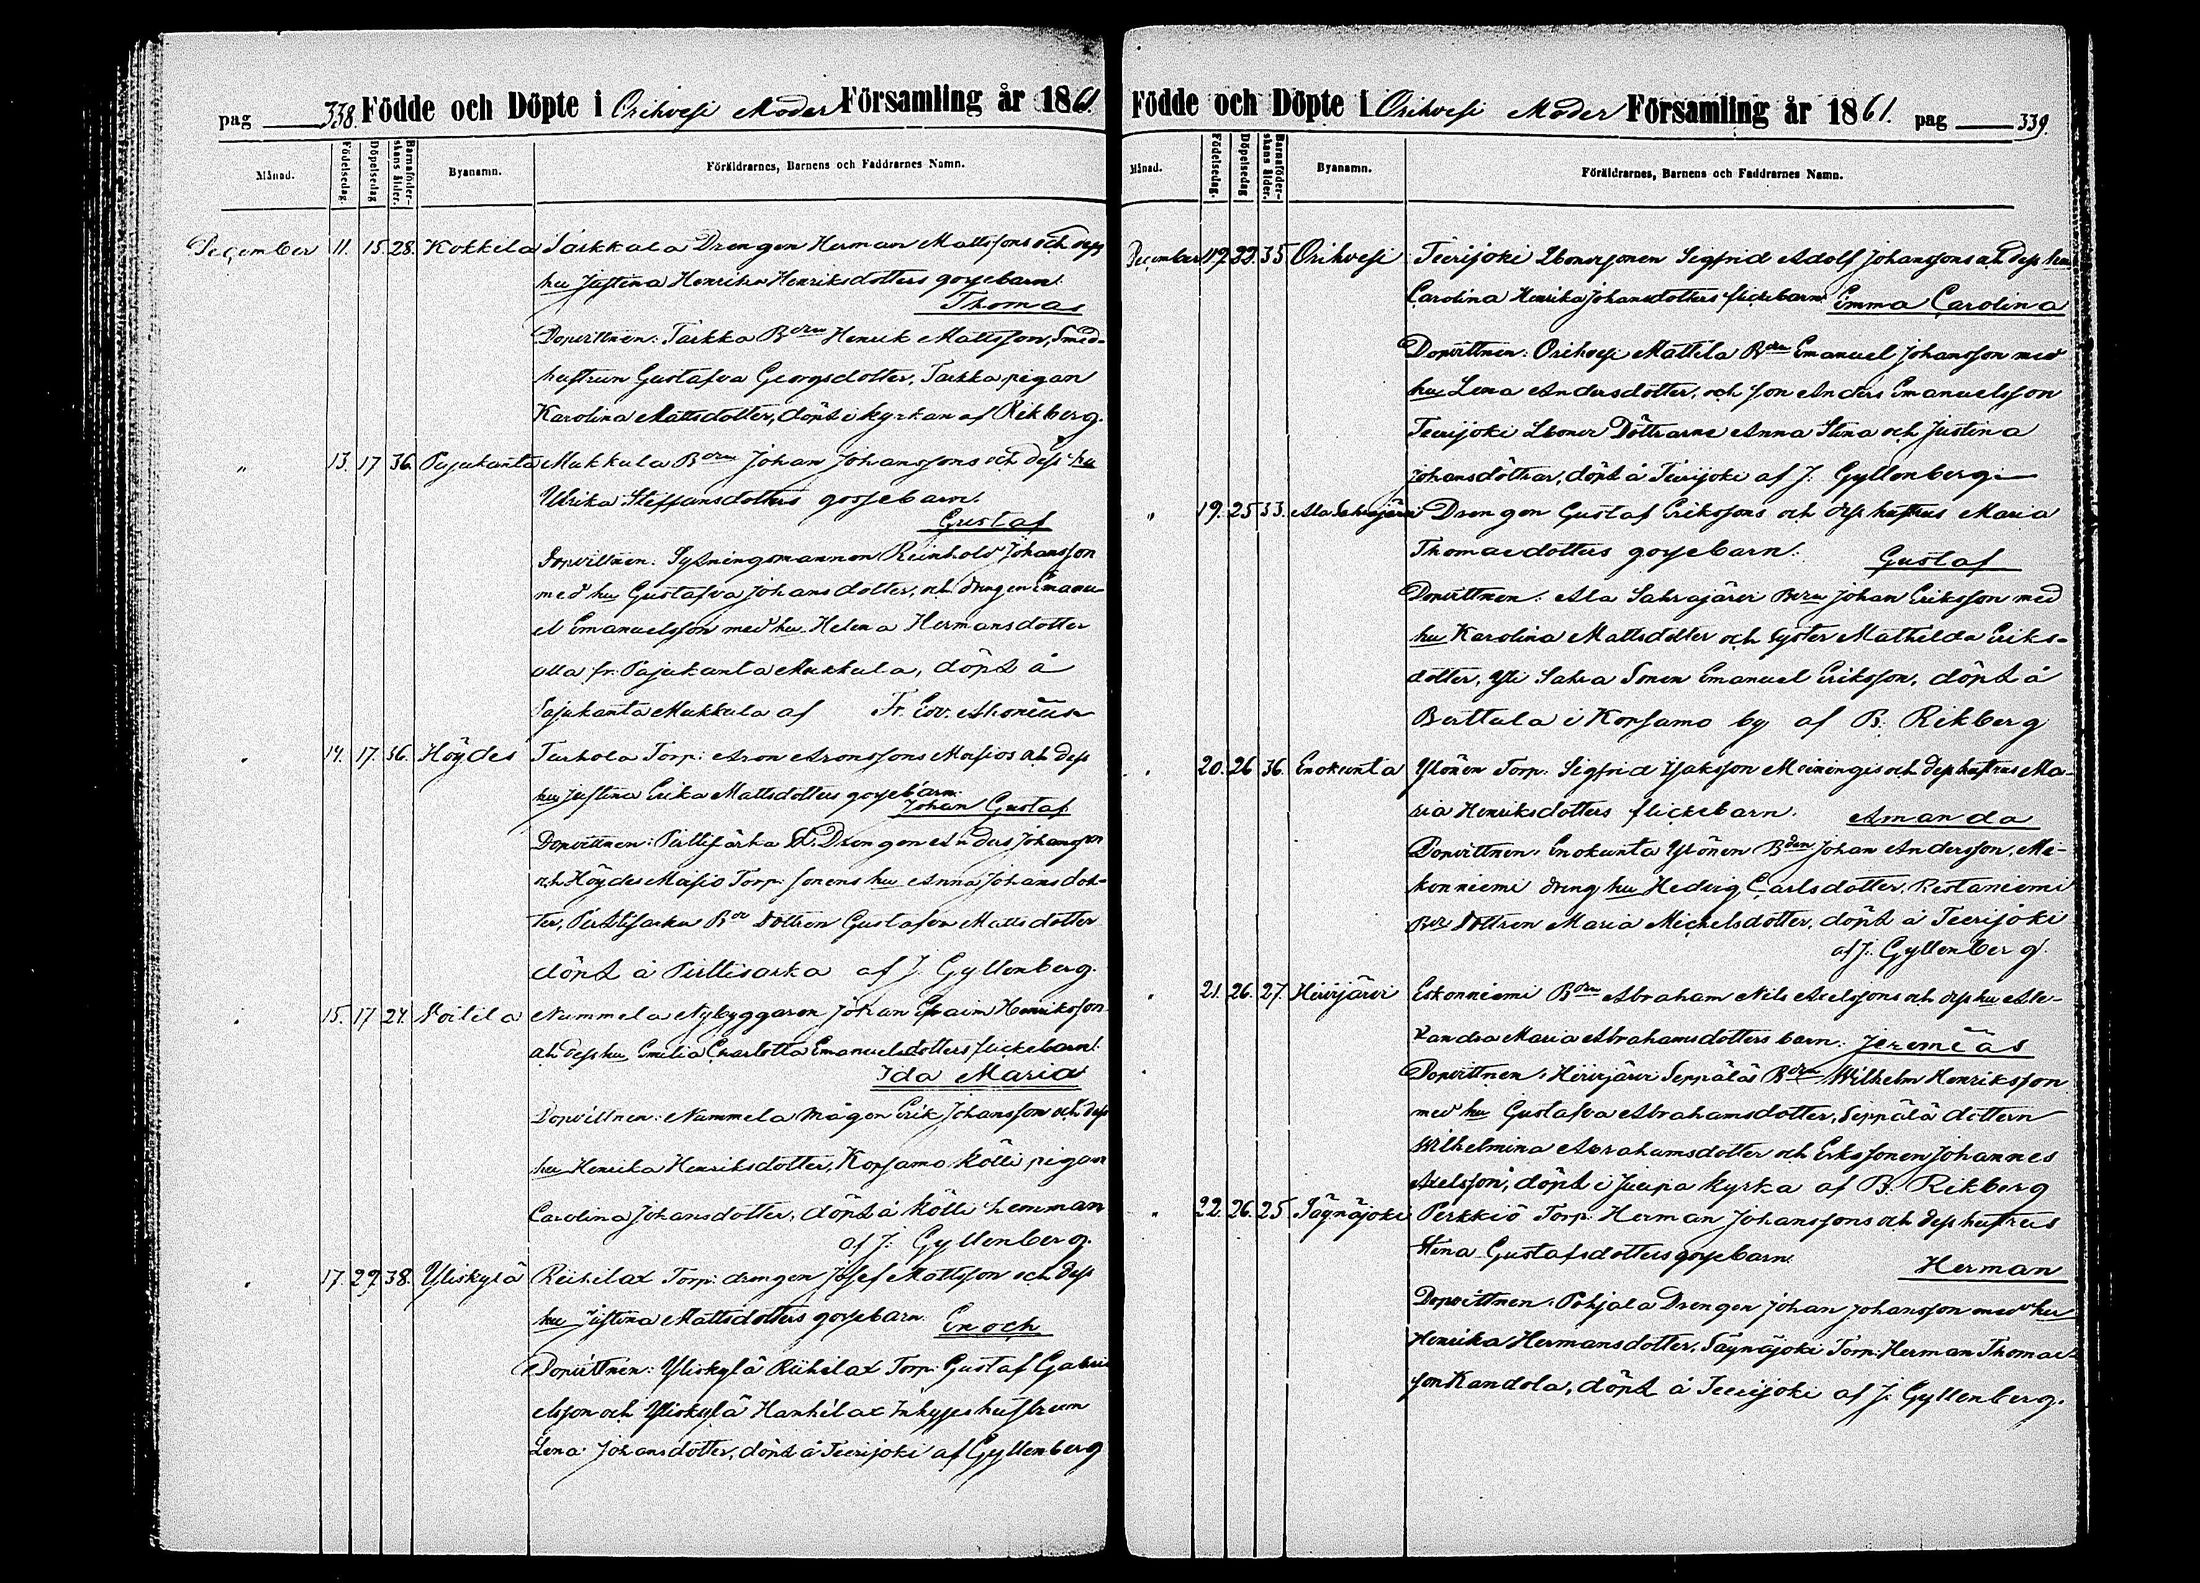 pag 338. Födde och Döpte i Orihvesi Moder Församling år 1861.
Månad. Födelsedag. Döpelsedag Barnaföderskans ålder. Byanamn. Föräldrarnes, Barnens och Faddrarnes Namn.
December 11. 15. 28. Kokkila Tarkkala Drengen Herman Mattssons och dess
hu Justina Henrika Henriksdotters gossebarn:
Thomas
Dopvittnen: Tarkka Henrik Mattsson, Smed-
hustrun Gustafva Georgsdotter, Tarkka pigan
Karolina Mattsdotter, döpt i kyrkan af Rikberg.
" 13. 17 36. Pajukanta Mukkula Johan Johanssons och dess hu
Ulrika Steffansdotters gossebarn:
Gustaf
Dopvittnen: Sytningsmannen Reinhold Johansson
med hu Gustafva Johansdotter, och drengen Emanu-
el Emanuelsson med hu Helena Hermansdotter
alla fr: Pajukanta Mukkula, döpt å
Pajukanta Mukkula af Fr. Edv. Ahonius
" 14. 17. 36. Höydes Turhola Torp: Aron Aronssons Maisios och dess
hu Justina Erika Mattsdotters gossebarn:
Johan Gustaf
Dopvittnen: Drengen Anders Johansson
och Höydes Maisio Torp: sonens hu Anna Johansdot-
ter, Dottren Gustafva Mattsdotter
döpt å Pirttisarka af J. Gyllenberg.
" 15. 17 24. Voitila Nummela Nybyggaren Johan Efraim Henriksson
och dess hu Emilia Charlotta Emanuelsdotters flickebarn:
Ida Maria
Dopvittnen: Nummela mågen Erik Johansson och dess
hu Henrika Henriksdotter, Kopsamo Kölli pigan
Carolina Johansdotter, döpt å Kölli hemman
af J: Gyllenberg.
" 17. 29. 38. Yliskylä Riihilax Torp: drengen Josef Mattsson och dess
hu Justina Mattsdotters gossebarn: Enoch
Dopvittnen: Yliskylä Riihilax Torp: Gustaf Gabri-
elsson och Yliskylä Hanhilax Inhyses hustrun
Lena Johansdotter, döpt å Teerijoki af Gyllenberg
Födde och Döpte i Orihvesi Moder Församling år 1861. pag 339.
Månad. Födelsedag. Döpelsedag Barnaföderskans ålder. Byanamn. Föräldrarnes, Barnens och Faddrarnes Namn.
December 35 Orihvesi Teerijoki Sigfrid Adolf Johanssons och dess hus
Carolina Henrika Johansdotters flickebarn Emma Carolina
Dopvittnen: Orihvesi Mattila Emanuel Johansson med
hu Lena Andersdotter, och son Anders Emanuelsson
Teerijoki Döttrarne Anna Stina och Justina
Johansdöttrar, döpt å Teerijoki af J. Gyllenberg
" 19. 25 33. Ala Sahrajärvi Drengen Gustaf Erikssons och dess hustrus Maria
Thomasdotters gossebarn: Gustaf
Dopvittnen: Ala Sahrajärvi Johan Eriksson med
hu Karolina Mattsdotter och syster Mathilda Eriks-
dotter, Yli Sahra Sonen Emanuel Eriksson, döpt å
Berttula i Kopsamo by af B: Rikberg
" 20. 26 36. Enokunta Ylönen Torp: Sigfrid Isaksson Meiningis och dess hustrus Ma-
ria Henriksdotters flickebarn: Amanda
Dopvittnen: Enokunta Ylönen Johan Andersson, Me-
konniemi dreng hu Hedvig Carlsdotter,
Dottren Maria Michelsdotter, döpt å Teerijoki
af J: Gyllenberg.
" 21. 26. 27. Hirvijärvi Eskonniemi Abraham Nils Axelssons och dess hu Ale-
xandra Maria Abrahamsdotters barn: Jeremias
Dopvittnen: Hirvijärvi Seppälä Wilhelm Henriksson
med hu Gustafva Abrahamsdotter, Seppälä dottern
Wilhelmina Abrahamsdotter och Johannes
Axelsson, döpt i Juupa kyrka af B: Rikberg
" 22. 26. 25. Säynäjoki Perkkiö Torp: Herman Johanssons och dess hustrus
Stina Gustafsdotters gossebarn: Herman
Dopvittnen: Pohjala Drengen Johan Johansson med hu
Henrika Hermansdotter, Säynäjoki Torp: Herman Thomas-
son Kandola, döpt å Teerijoki af J. Gyllenberg.